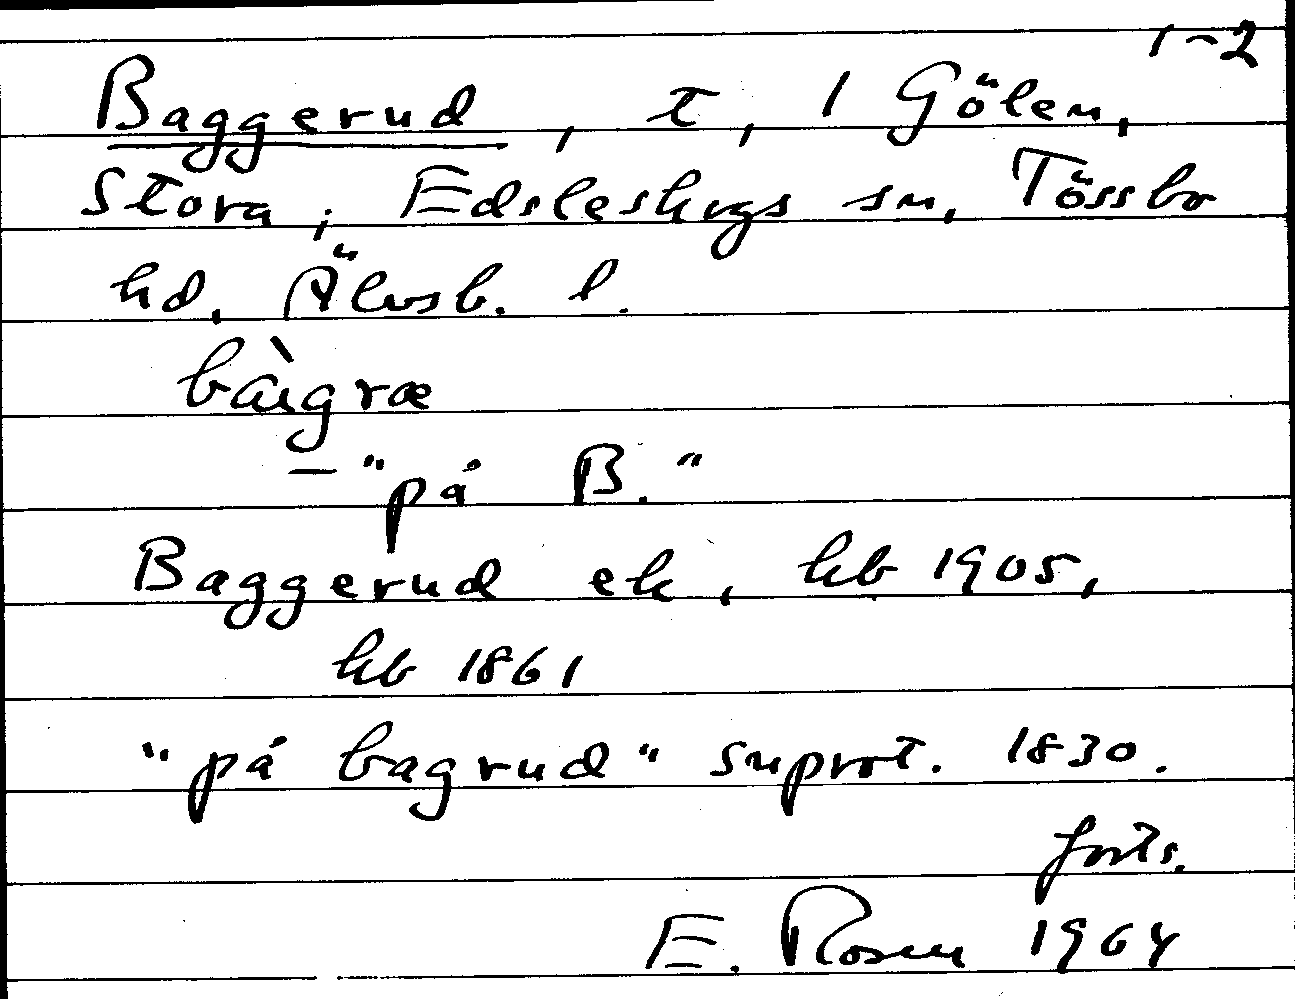 1-2
Baggerud, t, 1 Gölen,
Stora; Edsleskogs sn, Tössbo
hd, Älvsb. l.
bàgræ
– "på B."
Baggerud ek, hb 1905,
hb 1861
"på bagrud" snprot. 1830.
forts.
E. Rosen 1964